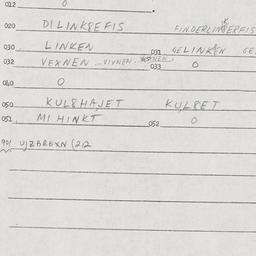 012 0
020 DILINK8EFIS FINDERLIN8ERFIS
030 LINKEN 031 GELINK8N GE
032 VEXNEN - VIXNEN - 033 0
040 0
050 KUL8HAJET KUL8ET
051 MIHINKT 052 0
901 UJZBRBXN (212